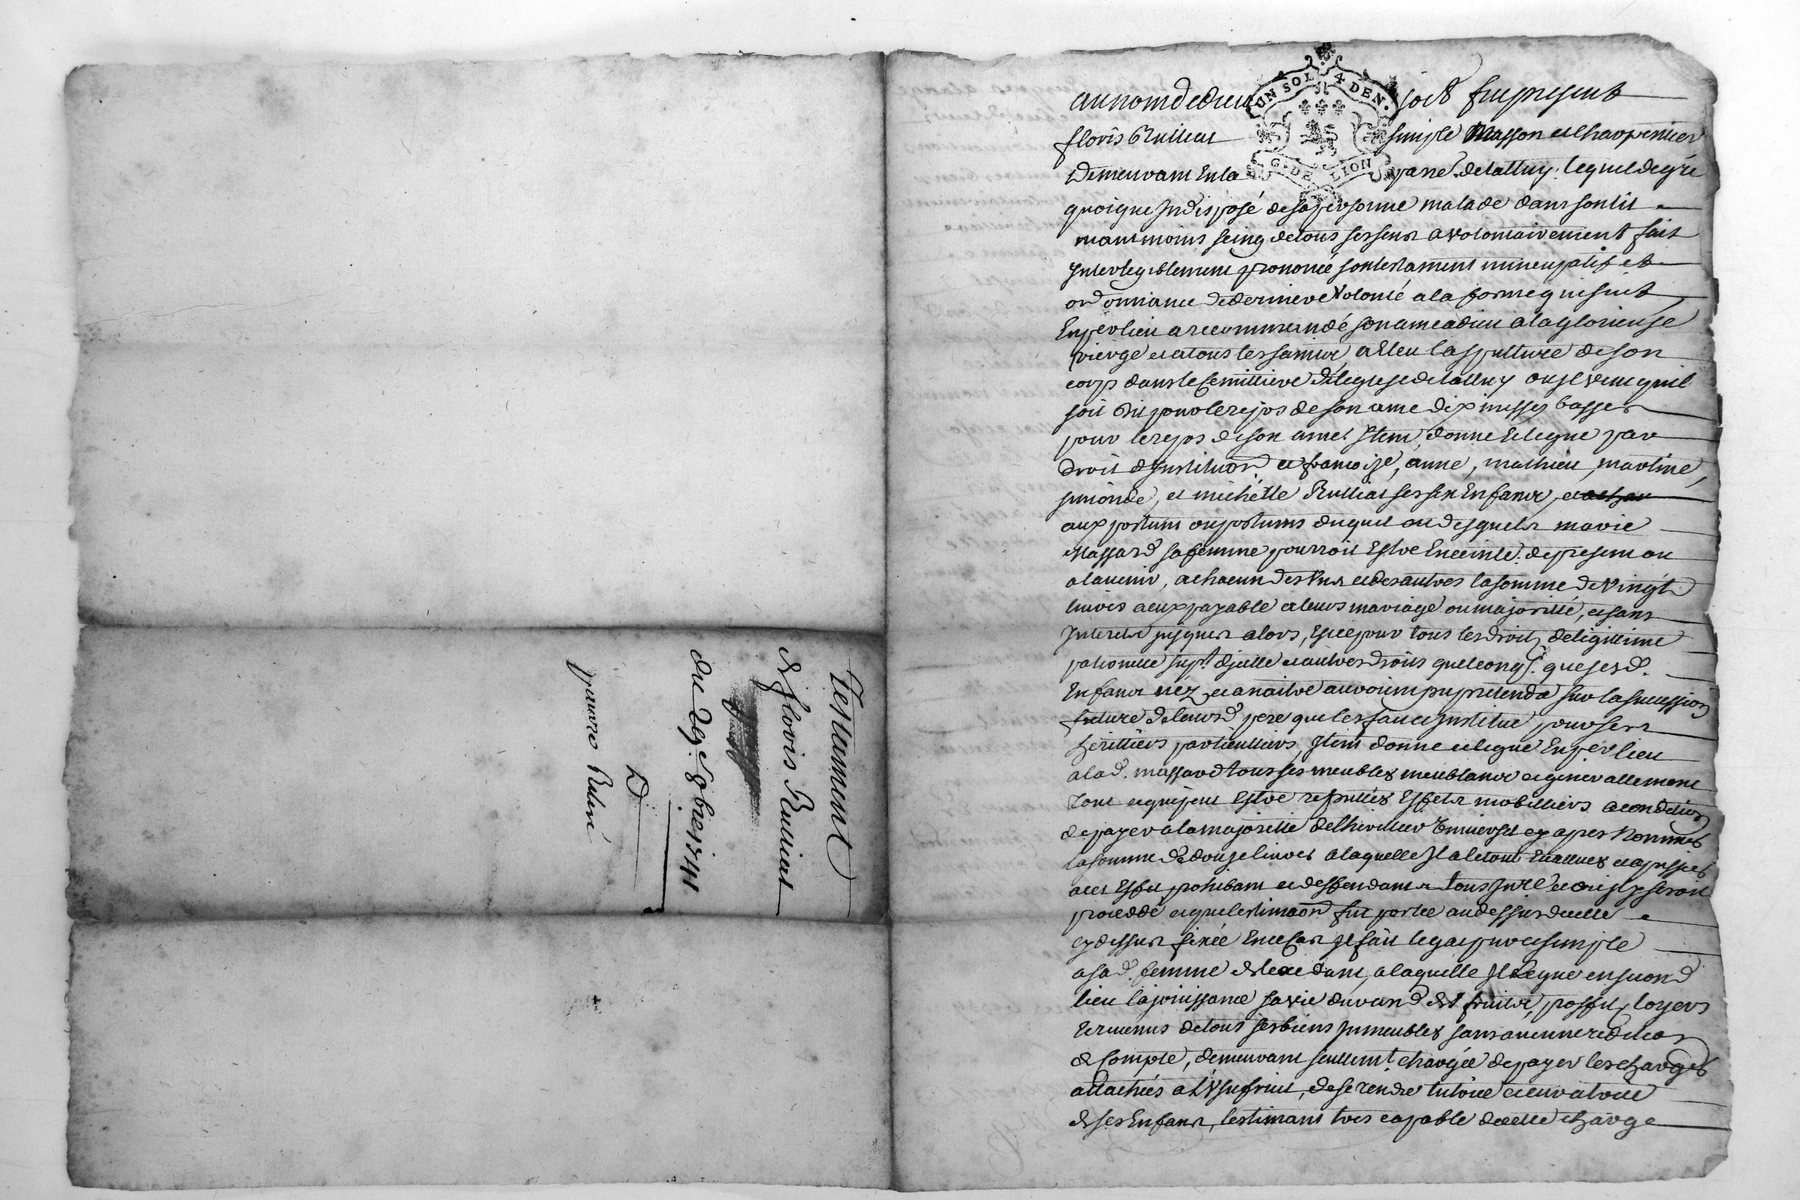 Testament
de floris Rulliat
du 27e 8bre 1741
D
pauvre Reliré
UN SOL 4 DEN.
G. DE LION
au nom de dieu soit fut present
floris Rulliat simple Masson et Charpentier
Demeurant en la parr. de talluy, lequel de gré
quoique Indisposé de sa personne malade dans son lit
neantmoins saing de tous ses sens a volontairement fait
Intelegiblement prononcé son testament nuncupatif et
ordonnance de derniere volonté a la forme que suit,
En per lieu a recommandé son ame a dieu a la glorieuse
vierge et a tous les saints, a Eleu la sepulture de son
corps dans le Cemittiere de leglise de talluy ou Il veut quil
soit dit pour le repos de son ame dix messes basses
pour le repos de son ame. Item donne et legue par
droit dInstitution a francoise, anne, mathieu, martine,
simonde, et michelle Rulliat ses six Enfants,
aux postum ou postums duquel ou desquels marie
Massard sa femme pourroit Estre Enceinte de present ou
a lavenir, a chacun des uns et des autres la somme de vingt
livres a eux payable a leurs mariage ou majorité, et sans
Interest jusques alors, Et ce pour tous les droits de legitime
paternelle supt. dicelle et autres droits quelconqs. que sesd.
Enfants nez et a naitre auroient pu pretendre sur la succession
future de leurd. pere que les fait et Institue pour ses
heritiers particulliers, Item donne et legue En per lieu
a lad. massard tous ses meubles meublants et generallement
tout ce qui peut Estre reputtés Effets mobilliers a condition
de payer a la majorité de lheritier Universel cy apres Nommés
la somme de douze livres a laquelle Il a le tout Evallués et apreciés
procedé et que lestimaon fut portée au dessus de celle
cy dessus fixée En ce Cas Il fait legat pur et simple
a sad. femme de lexcedant, a laquelle Il Legue en second
lieu la jouissance sa vie durand des fruits, proffits, loyers
et revenus de tous ses biens Immeubles sans aucune redition
de Compte, demeurant seullemt. chargée de payer les charges
attachées a lUsufruit, de se rendre tutrice et curatrice
de ses Enfants, lestimant tres capable de cette charge